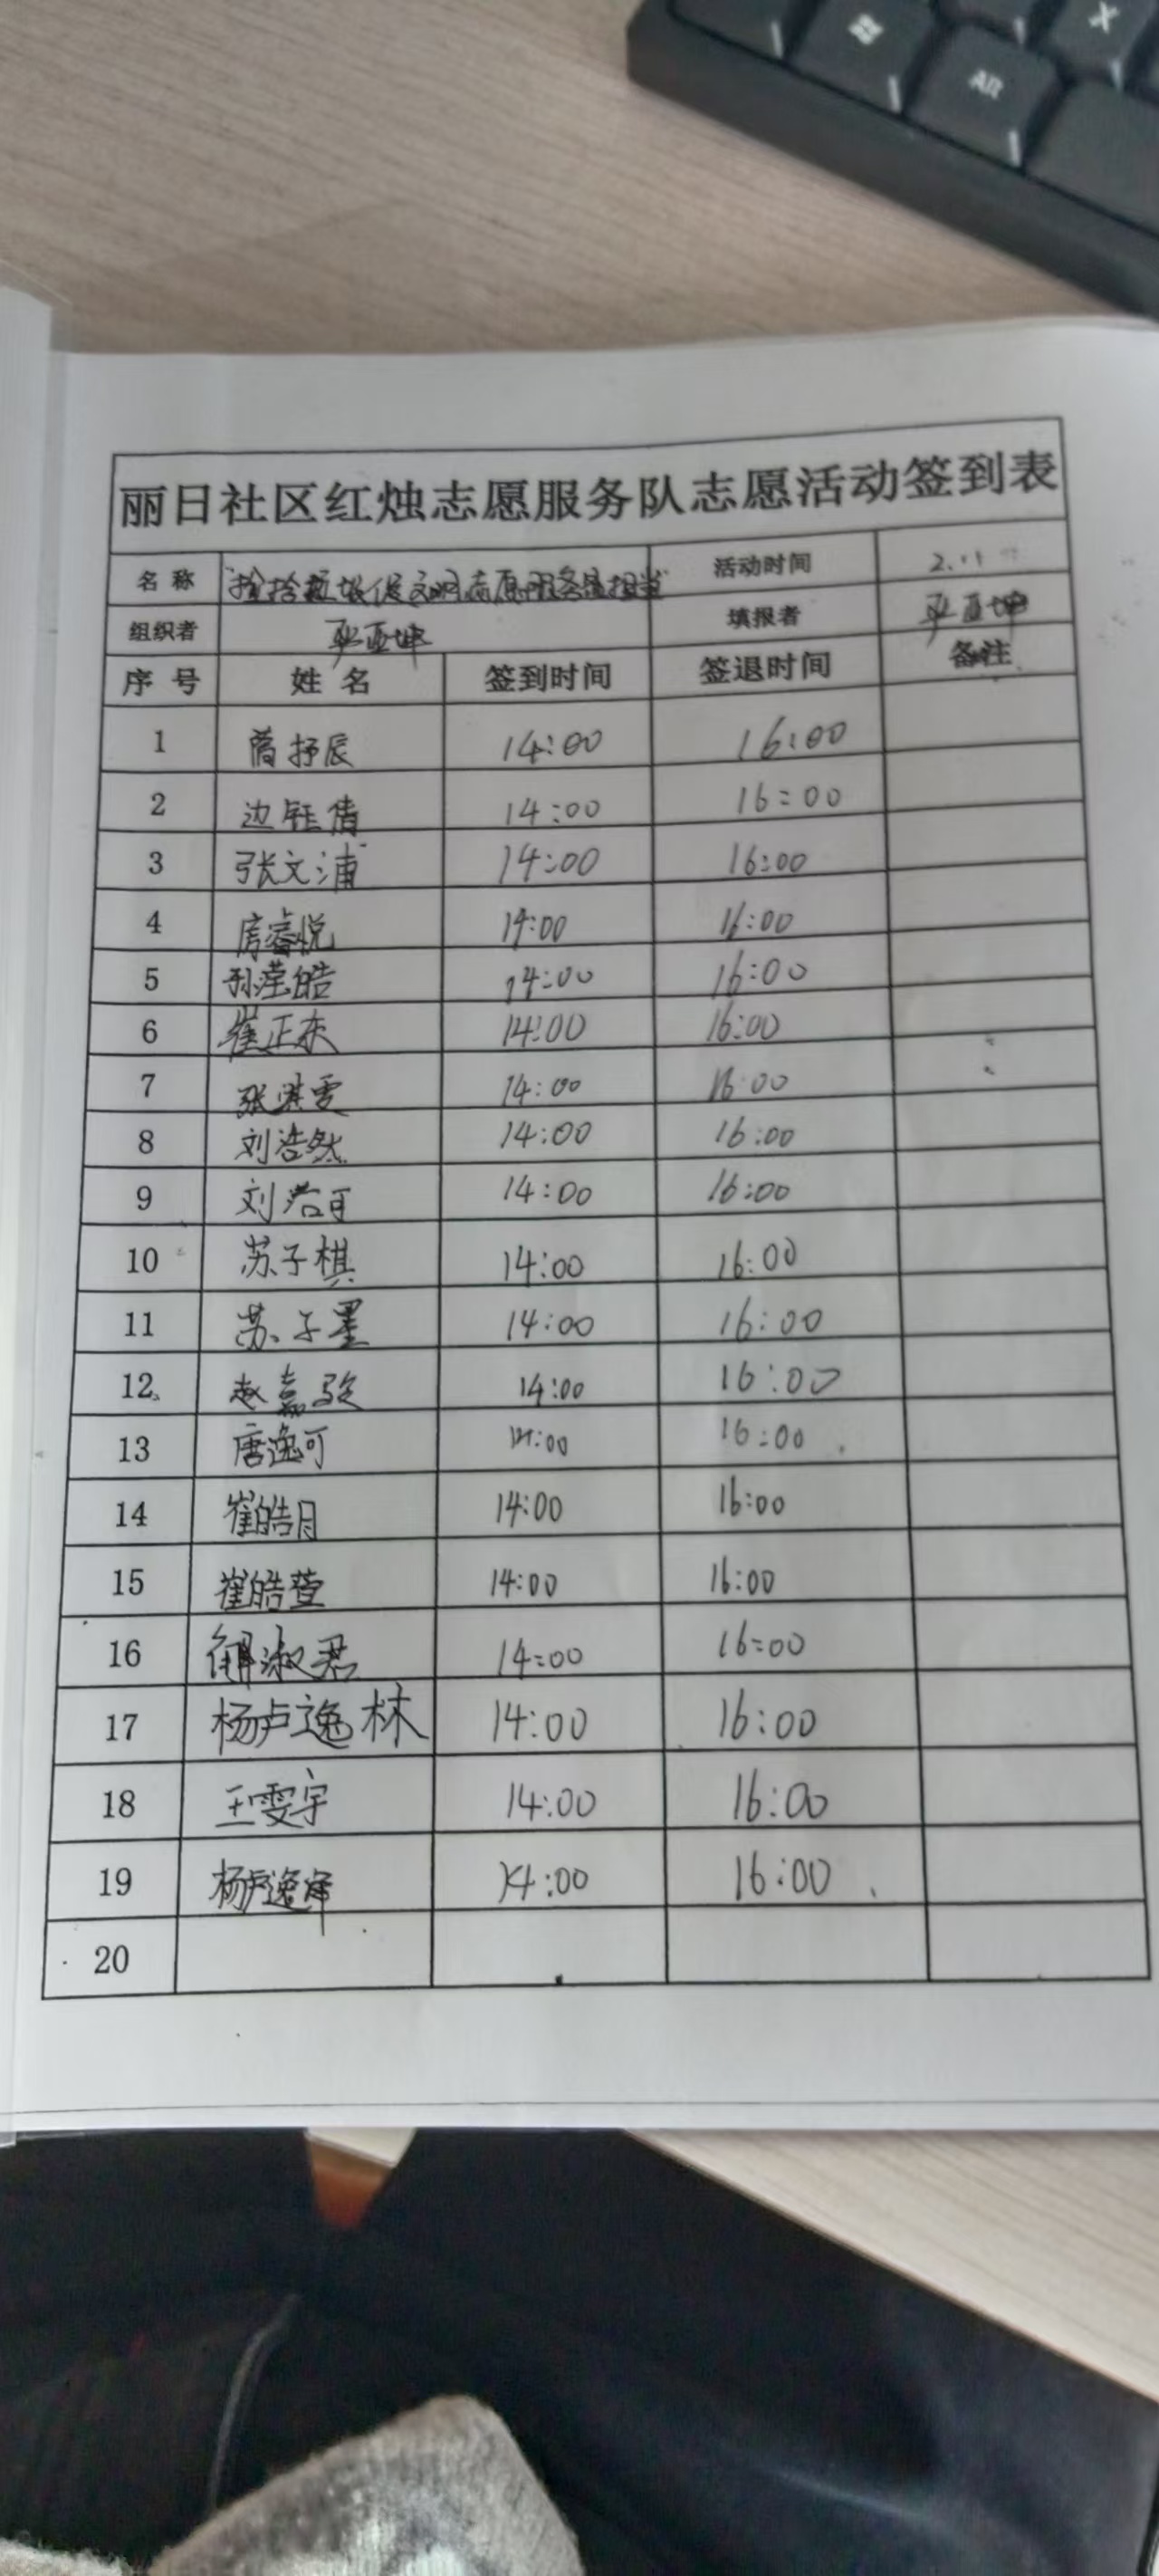 AR
X
丽日社区红烛志愿服务队志愿活动签到表
名称 捡拾垃圾促文明志愿服务显担当 活动时间 2.11
组织者 耿亚坤 填报者 耿亚坤
序号 姓名 签到时间 签退时间 备注
1 抒辰 14:00 16:00
2 边钰倩 14:00 16:00
3 张文浦 14:00 16:00
4 房睿悦 14:00 16:00
5 孙滢皓 14:00 16:00
6 崔正 14:00 16:00
7 张雯 14:00 16:00
8 刘浩然 14:00 16:00
9 刘若可 14:00 16:00
10 苏子棋 14:00 16:00
11 苏子墨 14:00 16:00
12 赵嘉 14:00 16:00
13 唐逸可 14:00 16:00
14 崔皓月 14:00 16:00
15 崔皓萱 14:00 16:00
16 解淑君 14:00 16:00
17 杨卢逸林 14:00 16:00
18 王雯宇 14:00 16:00
19 杨卢逸泽 14:00 16:00
20